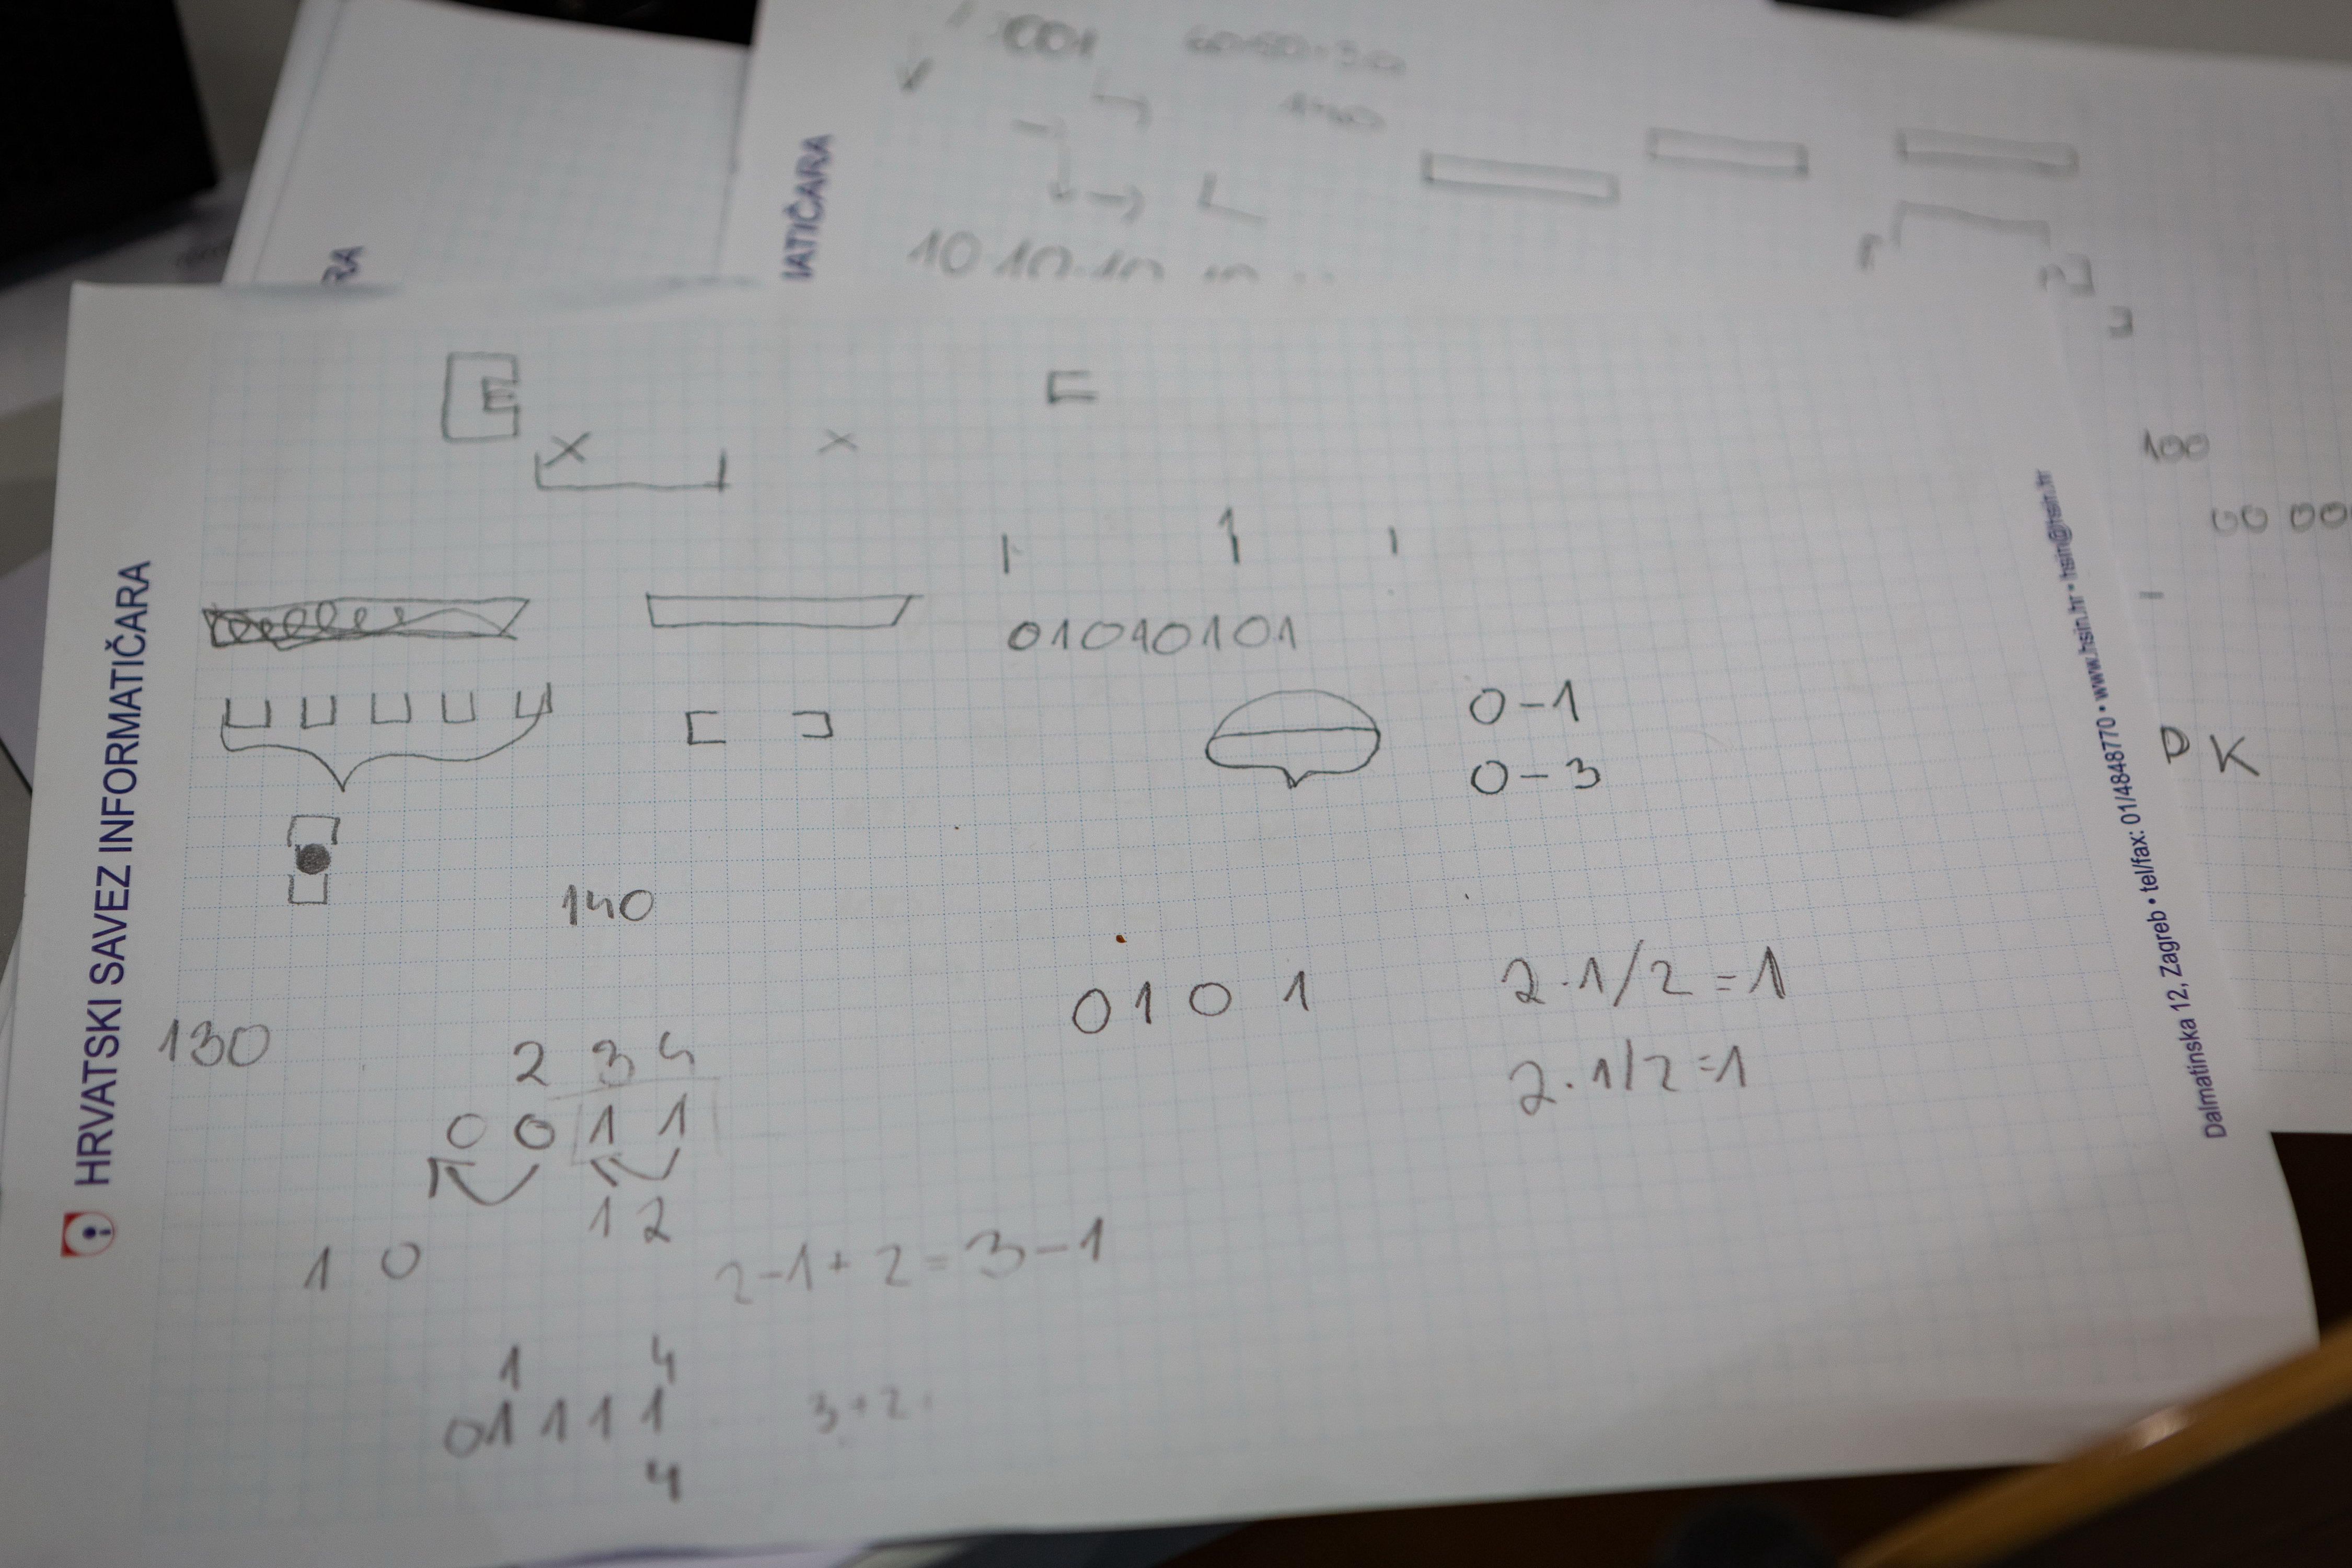 001
10 10 10
IATIČARA
RA
E
X X
1 1 1
01010101
0-1
0-3
140
0 1 0 1
2·1/2=1
2·1/2=1
130
2 3 4
0 0 1 1
1 2
1 0
2-1+2=3-1
1 4
01111
3+2
4
HRVATSKI SAVEZ INFORMATIČARA
Dalmatinska 12, Zagreb • tel/fax: 01/4848770 • www.hsin.hr • hsin@hsin.hr
100
00 00
P K